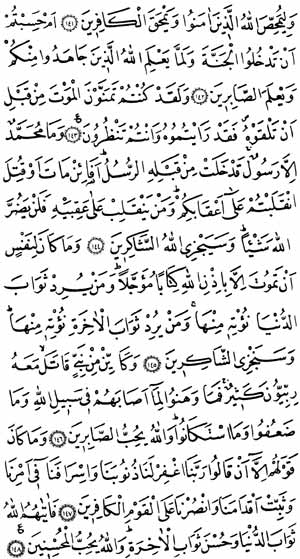 وَلِيُمَحِّصَ اللّٰهُ الَّذِيْنَ اٰمَنُوْا وَيَمْحَقَ الْكَافِرِيْنَ ﴿١٤١﴾ اَمْ حَسِبْتُمْ
اَنْ تَدْخُلُوا الْجَنَّةَ وَلَمَّا يَعْلَمِ اللّٰهُ الَّذِيْنَ جَاهَدُوْا مِنْكُمْ
وَيَعْلَمَ الصَّابِرِيْنَ ﴿١٤٢﴾ وَلَقَدْ كُنْتُمْ تَمَنَّوْنَ الْمَوْتَ مِنْ قَبْلِ
اَنْ تَلْقَوْهُ فَقَدْ رَاَيْتُمُوْهُ وَاَنْتُمْ تَنْظُرُوْنَ ﴿١٤٣﴾ وَمَا مُحَمَّدٌ
اِلَّا رَسُوْلٌ قَدْ خَلَتْ مِنْ قَبْلِهِ الرُّسُلُ اَفَائِنْ مَاتَ اَوْ قُتِلَ
انْقَلَبْتُمْ عَلٰٓى اَعْقَابِكُمْ وَمَنْ يَنْقَلِبْ عَلٰى عَقِبَيْهِ فَلَنْ يَضُرَّ
اللّٰهَ شَيْئًا وَسَيَجْزِي اللّٰهُ الشَّاكِرِيْنَ ﴿١٤٤﴾ وَمَا كَانَ لِنَفْسٍ
اَنْ تَمُوْتَ اِلَّا بِاِذْنِ اللّٰهِ كِتَابًا مُؤَجَّلًا وَمَنْ يُرِدْ ثَوَابَ
الدُّنْيَا نُؤْتِهٖ مِنْهَا وَمَنْ يُرِدْ ثَوَابَ الْاٰخِرَةِ نُؤْتِهٖ مِنْهَا
وَسَنَجْزِي الشَّاكِرِيْنَ ﴿١٤٥﴾ وَكَاَيِّنْ مِنْ نَبِيٍّ قَاتَلَ مَعَهُ
رِبِّيُّوْنَ كَثِيْرٌ فَمَا وَهَنُوْا لِمَٓا اَصَابَهُمْ فِيْ سَبِيْلِ اللّٰهِ وَمَا
ضَعُفُوْا وَمَا اسْتَكَانُوْا وَاللّٰهُ يُحِبُّ الصَّابِرِيْنَ ﴿١٤٦﴾ وَمَا كَانَ
قَوْلَهُمْ اِلَّٓا اَنْ قَالُوْا رَبَّنَا اغْفِرْ لَنَا ذُنُوْبَنَا وَاِسْرَافَنَا فِيْٓ اَمْرِنَا
وَثَبِّتْ اَقْدَامَنَا وَانْصُرْنَا عَلَى الْقَوْمِ الْكَافِرِيْنَ ﴿١٤٧﴾ فَاٰتٰيهُمُ اللّٰهُ
ثَوَابَ الدُّنْيَا وَحُسْنَ ثَوَابِ الْاٰخِرَةِ وَاللّٰهُ يُحِبُّ الْمُحْسِنِيْنَ ﴿١٤٨﴾